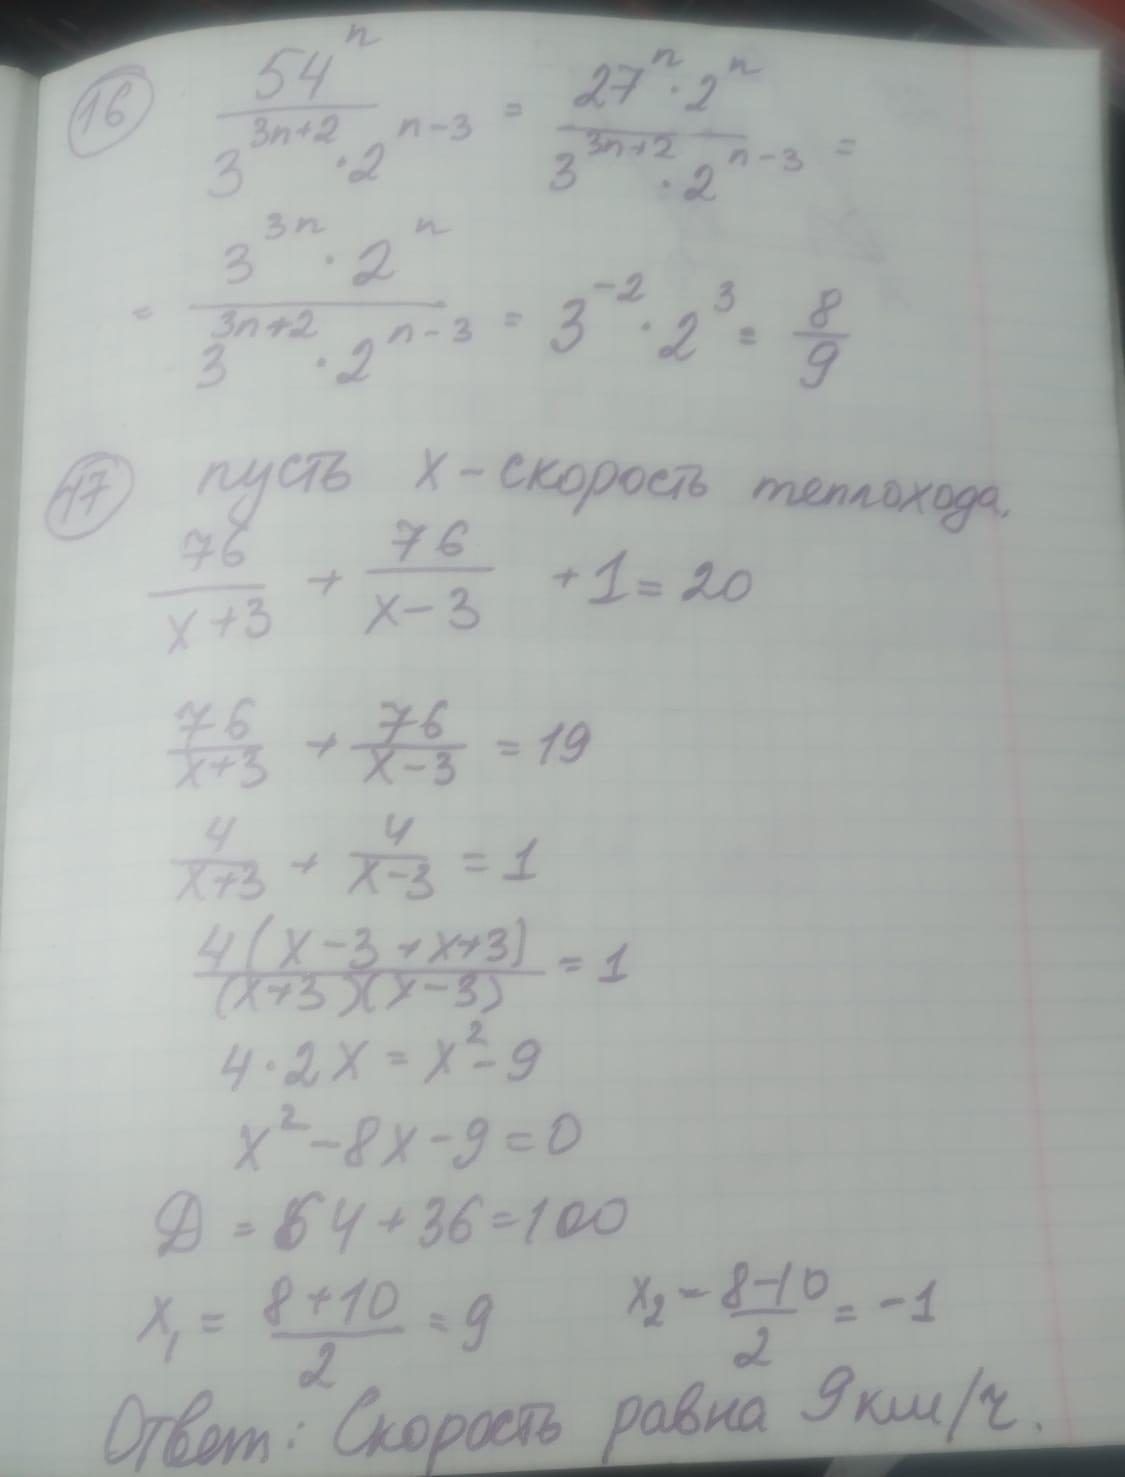 16 54^n / (3^(3n+2) · 2^(n-3)) = (27^n · 2^n) / (3^(3n+2) · 2^(n-3)) =
= (3^(3n) · 2^n) / (3^(3n+2) · 2^(n-3)) = 3^(-2) · 2^3 = 8/9
17 пусть x - скорость теплохода.
76/(x+3) + 76/(x-3) + 1 = 20
76/(x+3) + 76/(x-3) = 19
4/(x+3) + 4/(x-3) = 1
4(x-3+x+3)/((x+3)(x-3)) = 1
4·2x = x^2 - 9
x^2 - 8x - 9 = 0
Д = 64 + 36 = 100
x₁ = (8+10)/2 = 9 x₂ - (8-10)/2 = -1
Ответ: Скорость равна 9км/ч.